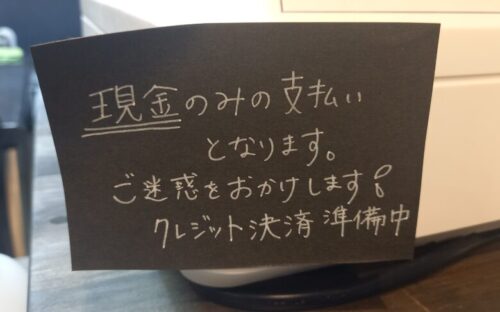 現金のみの支払い
となります。
ご迷惑をおかけします
クレジット決済準備中